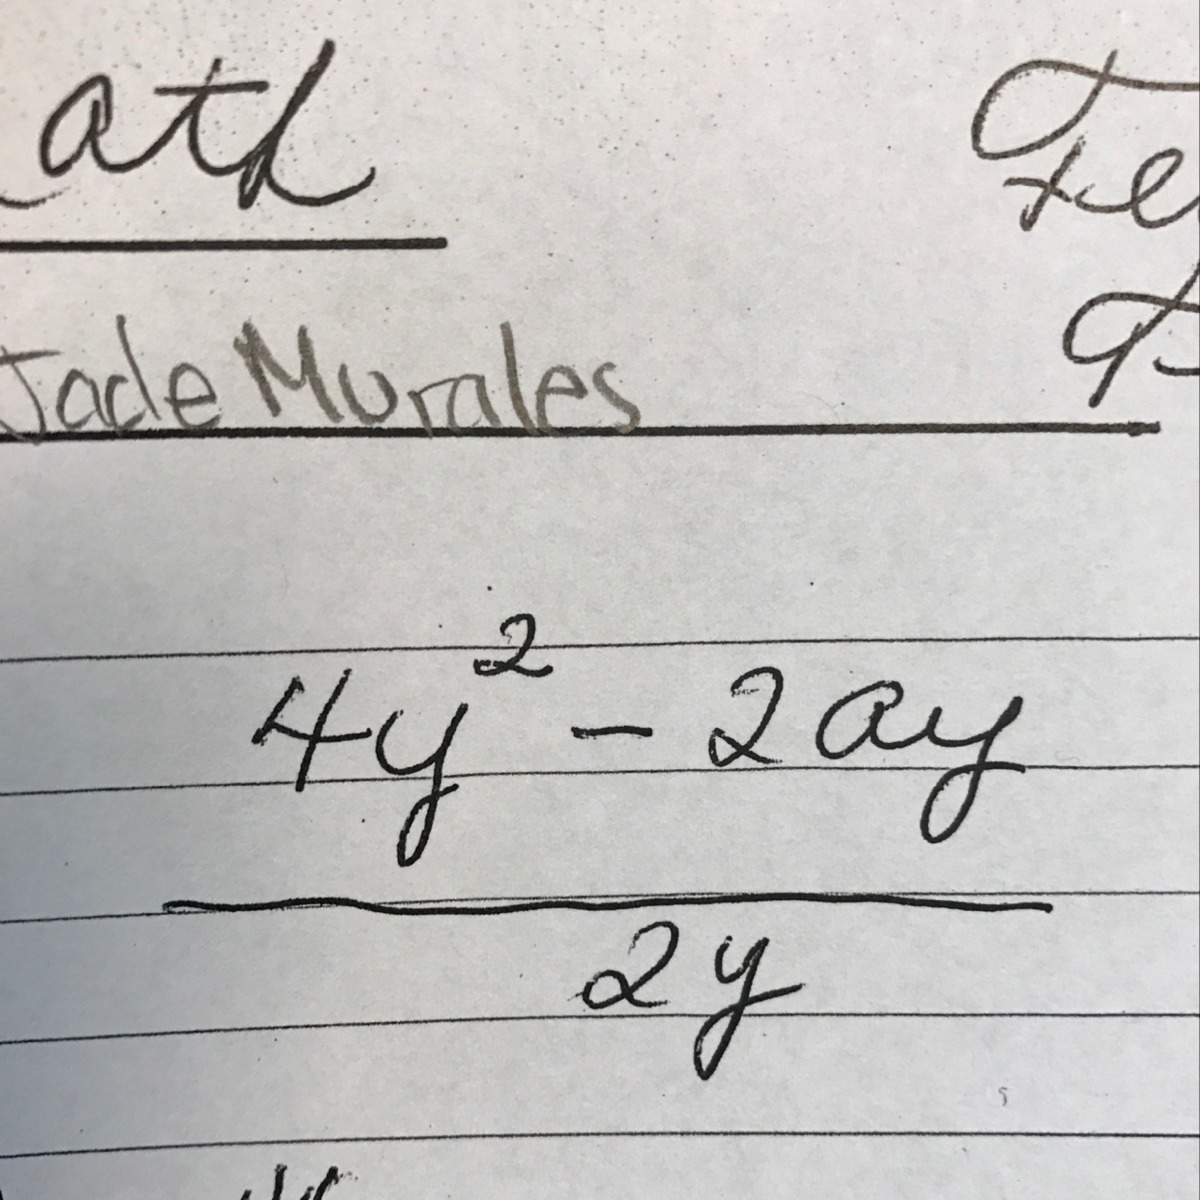 ath
Jade Murales
4y² - 2ay
2y